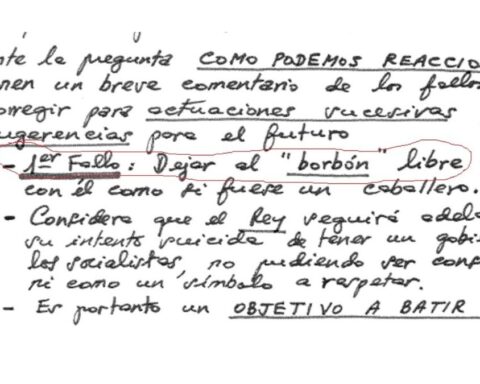 nte la pregunta COMO PODEMOS REACCIO
nen un breve comentario de los fallos
orregir para actuaciones sucesivas
ugerencias para el futuro
- 1er Fallo: Dejar al "borbón" libre
con él como si fuese un caballero.
- Considera que el Rey seguirá adela
su intento suicida de tener un gobi
los socialistas, no pudiendo ser cons
ni como un símbolo a respetar.
- Es portanto un OBJETIVO A BATIR